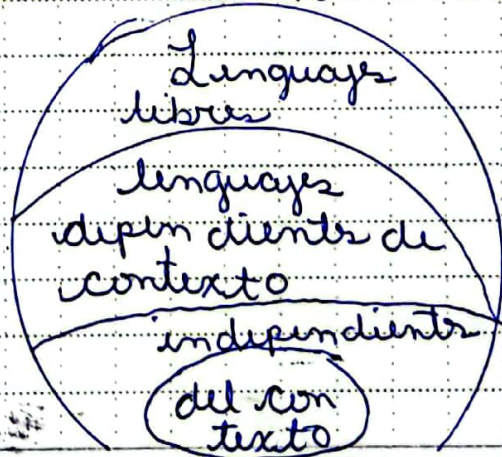 Lenguajes
libres
lenguajes
dependientes de
contexto
independientes
del con
texto